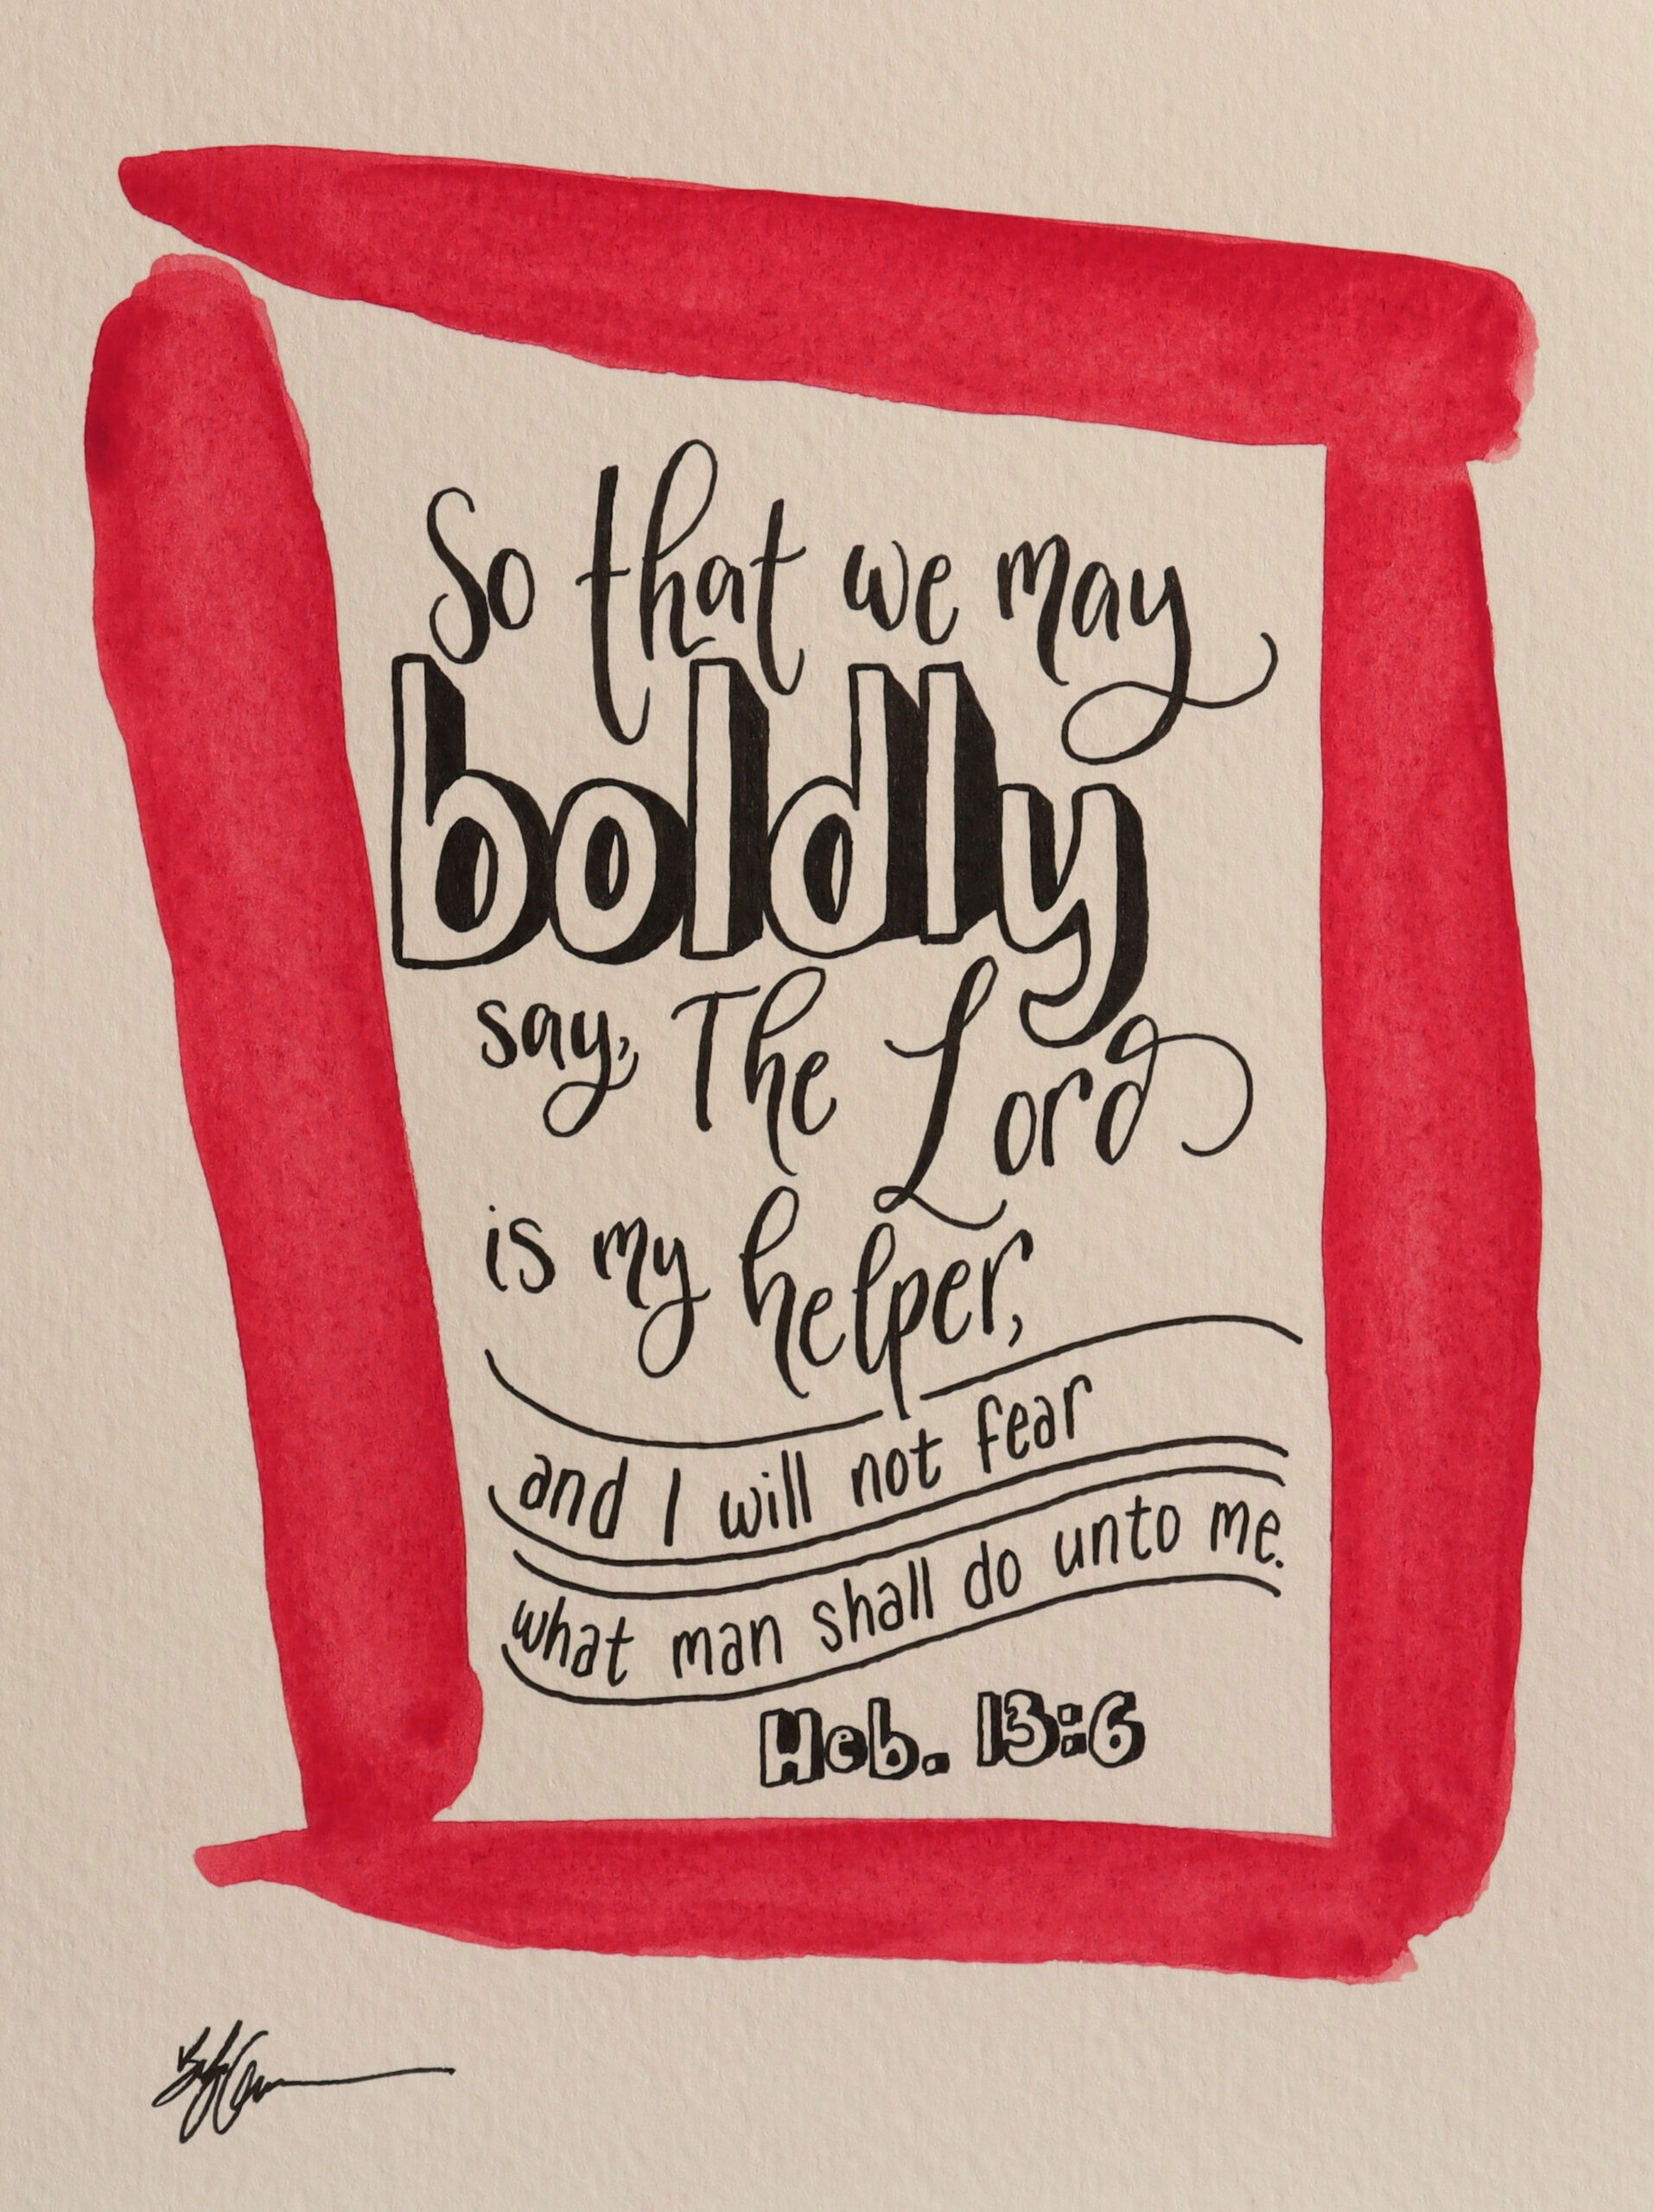 So that we may
boldly
say, The Lord
is my helper,
and I will not fear
what man shall do unto me.
Heb. 13:6